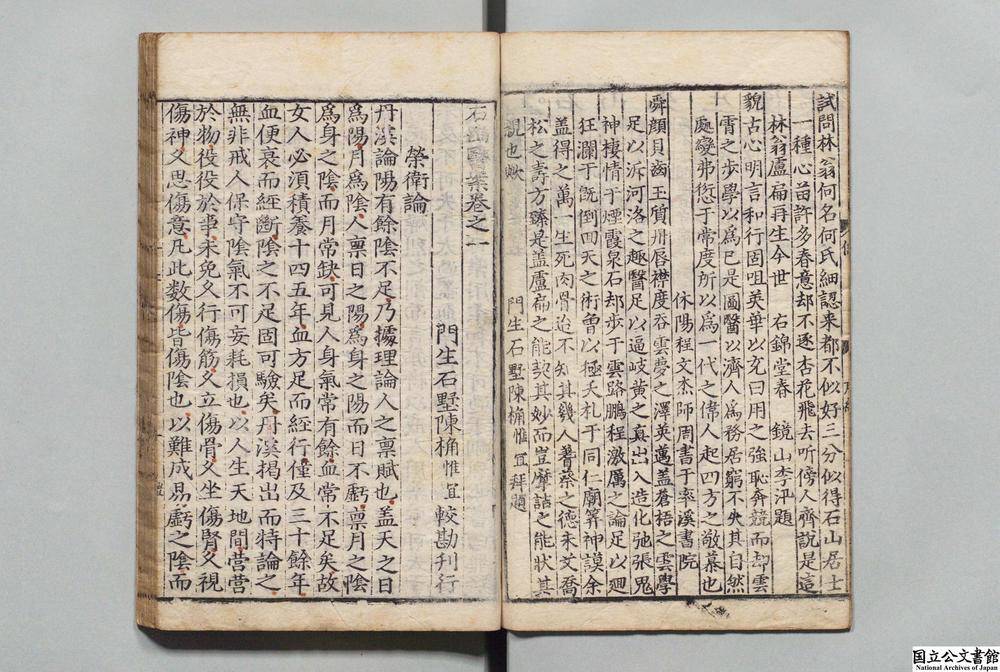 試問林翁何名何氏細認来都不似好三分似得石山居士
一種心苗許多春意却不逐杏花飛去听傍人齊說是這
林翁盧扁再生今世　右錦堂春　鏡山李汛題
貌古心明言和行固咀英華以充日用之強恥奔競而却雲
霄之步學以爲已是圖醫以濟人爲務居窮不失其自然
處變弗愆于常度所以爲一代之偉人起四方之敬慕也
休陽程文杰師周書于率溪書院
舜顔貝齒玉質丹唇襟度吞雲夢之澤英邁盖蒼梧之雲學
足以泝河洛之趣醫足以逼岐黄之真出入造化弛張鬼
神棲情于煙霞泉石却步于雲路鵬程激厲之論足以廻
狂瀾于既倒回天之術曾以極夭札于同仁廟筭神謨余
盖得之萬一生死肉骨迨不知其幾人蓍蔡之德朱文喬
松之壽方臻是盖盧扁之能契其妙而豈摩詰之能狀其
覩也歟
門生石墅陳桷惟宜拜題
石山醫案卷之一
門生石墅陳桷惟宜較勘刊行
榮衛論
丹溪論陽有餘陰不足乃據理論人之稟賦也盖天之日
爲陽月爲陰人稟日之陽爲身之陽而日不虧稟月之陰
爲身之陰而月常缺可見人身氣常有餘血常不足矣故
女人必湏積養十四五年血方足而經行僅及三十餘年
血便衰而經斷陰之不足固可驗矣丹溪揭出而特論之
無非戒人保守陰氣不可妄耗損也以人生天地間營營
於物役役於事未免久行傷筋久立傷骨久坐傷腎久視
傷神久思傷意凡此數傷皆傷陰也以難成易虧之陰而
国立公文書館
National Archives of Japan